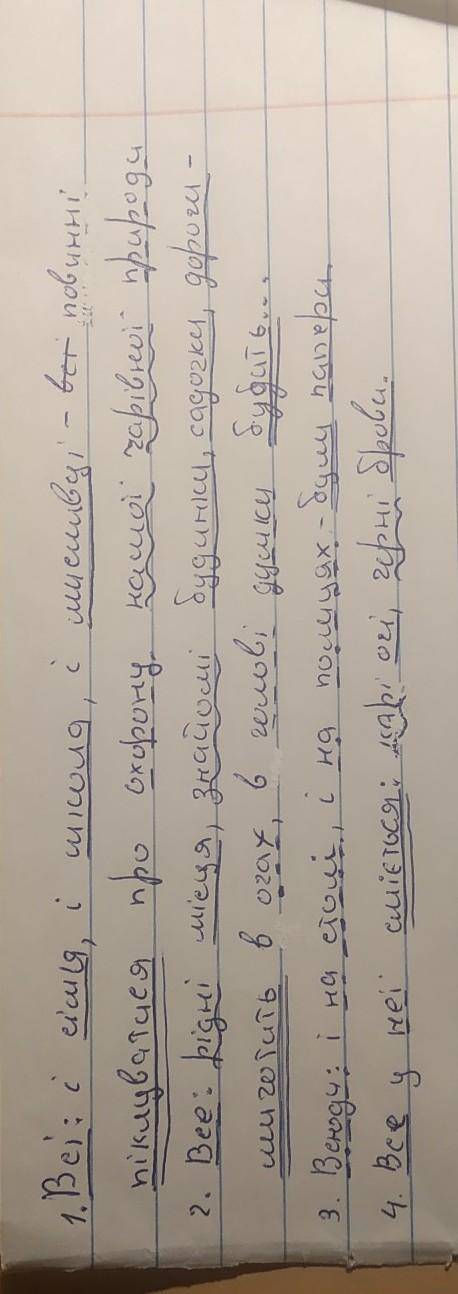 1. Всі: і сім'я, і школа, і мисливці - всі повинні
піклуватися про охорону нашої чарівної природи
2. Все: рідні місця, знайомі будинки, садочки, дороги -
миготить в очах, в голові думки будить...
3. Всюди: і на столі, і на полицях - були папери.
4. Все у неї сміється: карі очі, чорні брови.